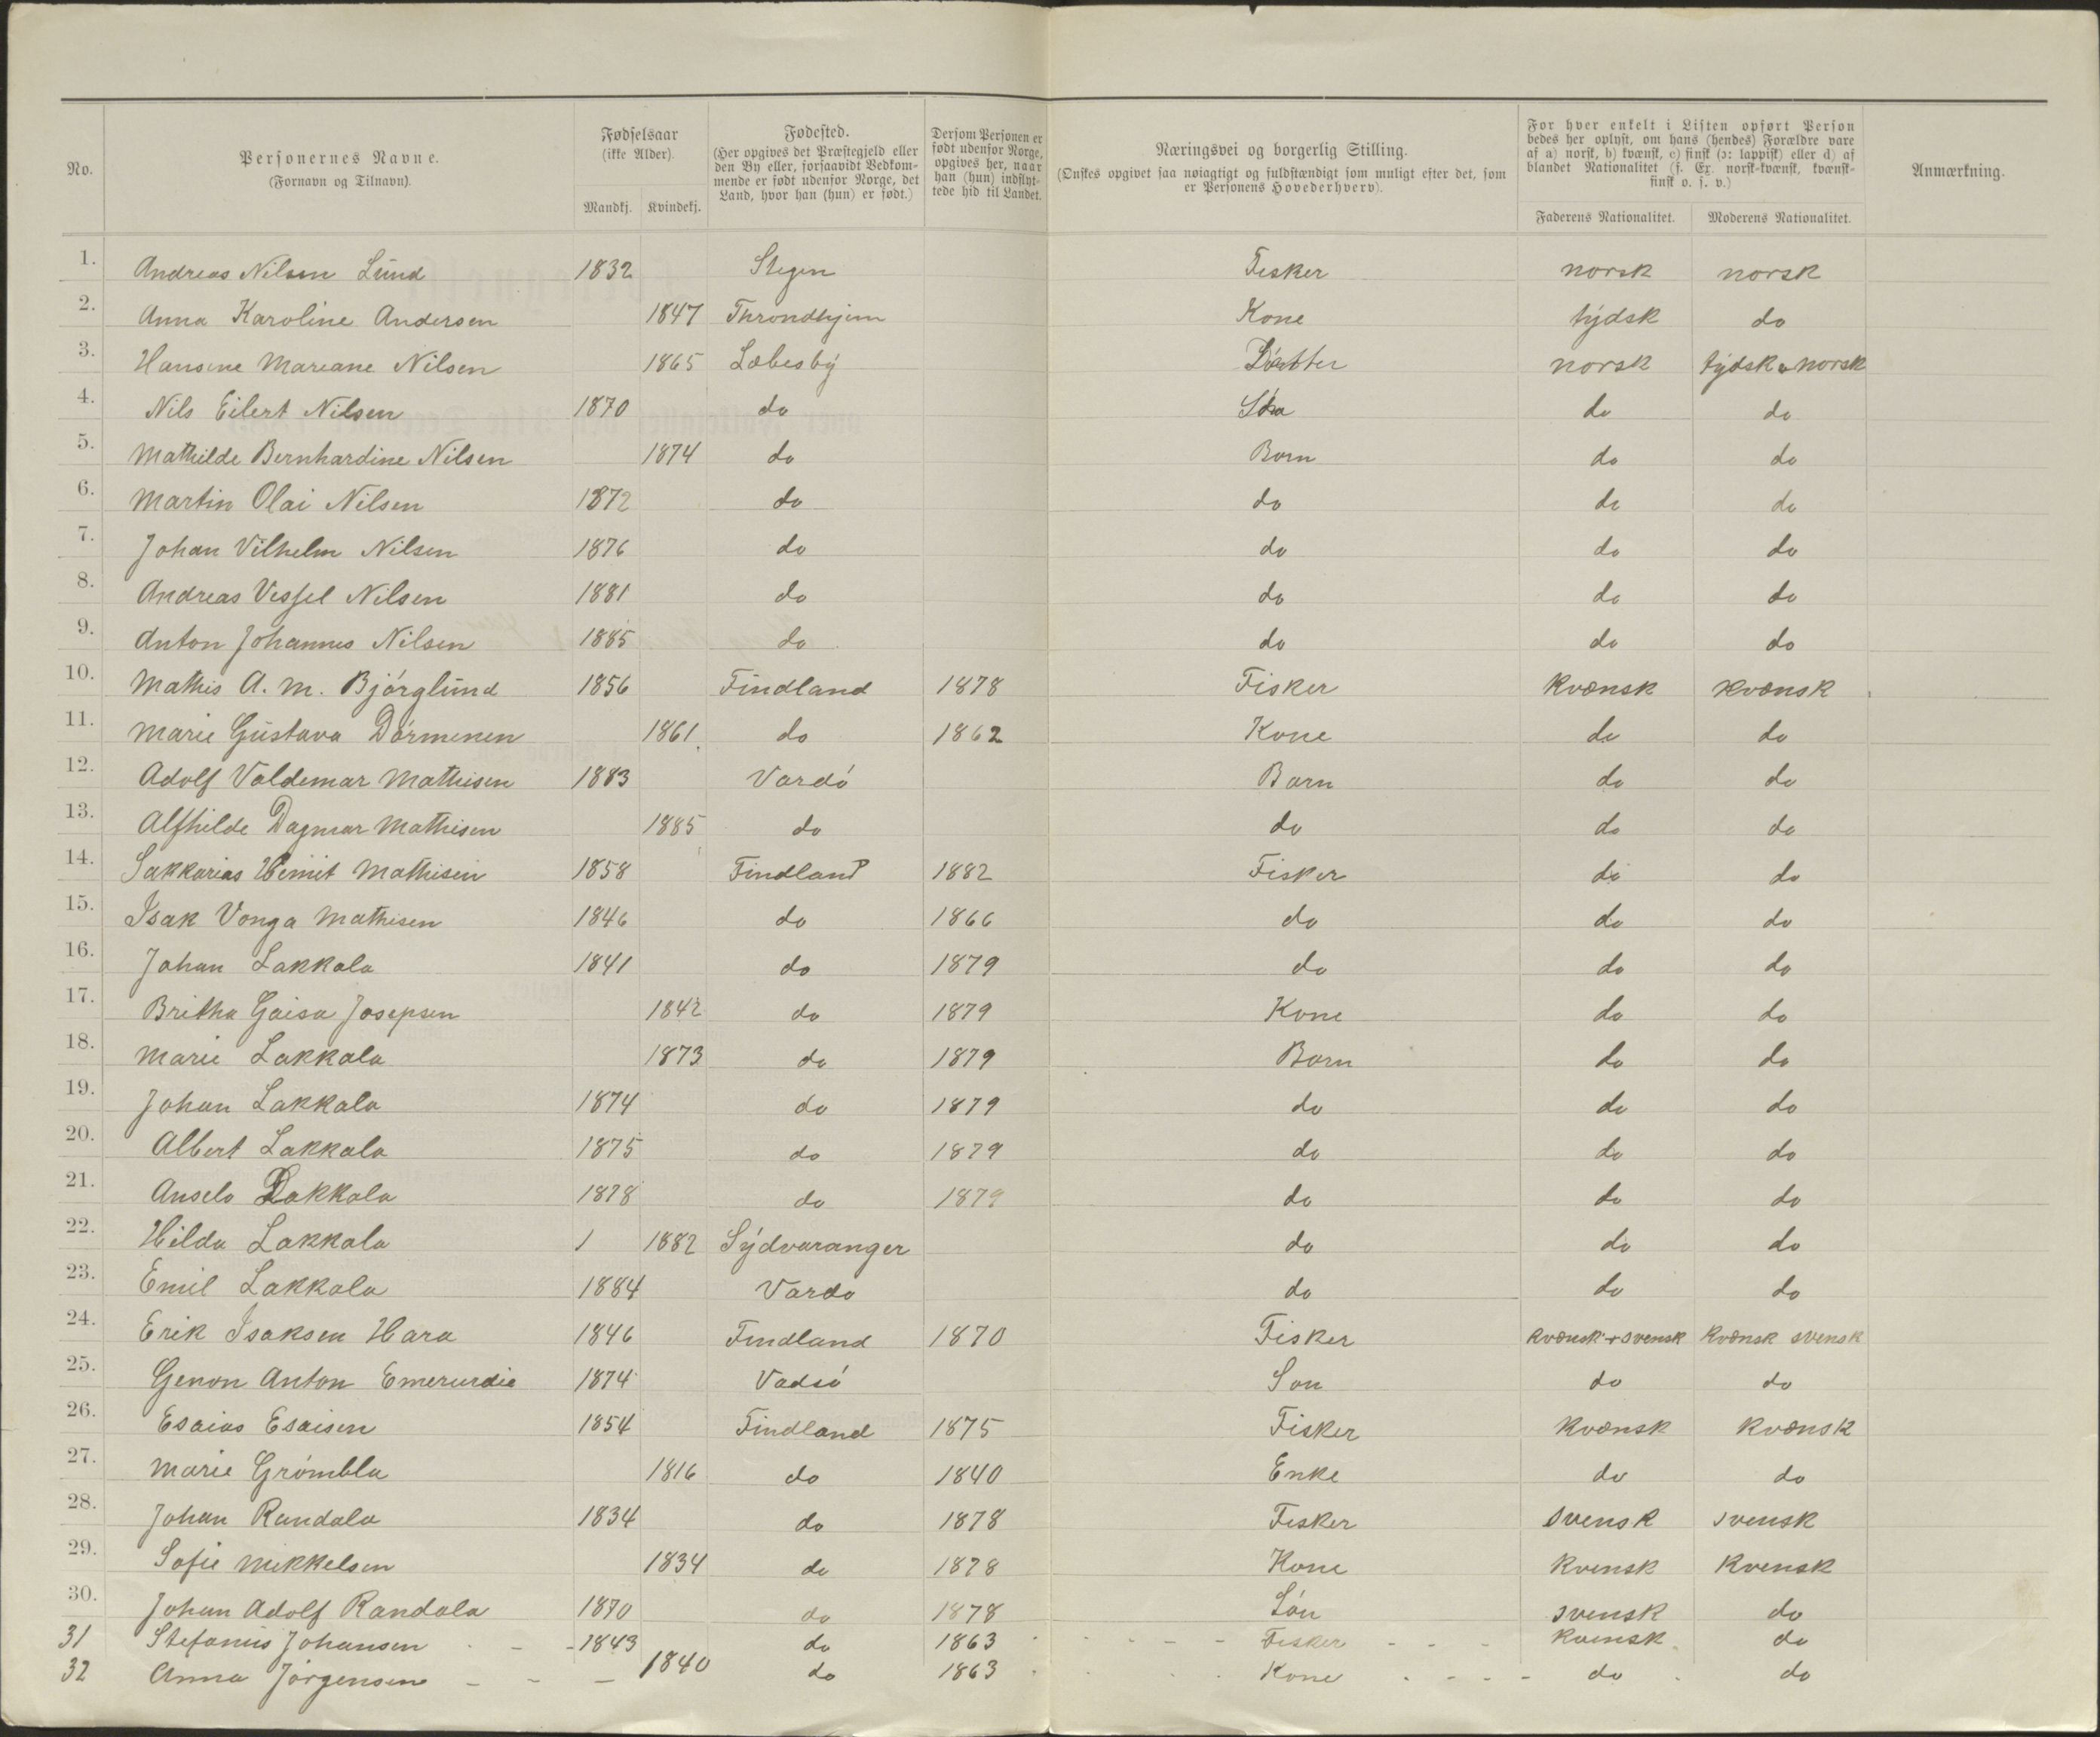 No.
Personernes Navne.
(Fornavn og Tilnavn).
Fødselsaar
(ikke Alder).
Mandkj. Kvindekj.
Fødested.
(Her opgives det Præstegjeld eller
den By eller, forsaavidt Vedkom-
mende er født udenfor Norge, det
Land, hvor han (hun) er født.)
Dersom Personen er
født udenfor Norge,
opgives her, naar
han (hun) indflyt-
tede hid til Landet.
Næringsvei og borgerlig Stilling.
(Ønskes opgivet saa nøiagtigt og fuldstændigt som muligt efter det, som
er Personens Hovederhverv).
For hver enkelt i Listen opført Person
bedes her oplyst, om hans (hendes) Forældre vare
af a) norsk, b) kvænsk, c) finsk (ɔ: lappisk) eller d) af
blandet Nationalitet (f. Ex. norsk-kvænsk, kvænsk-
finsk o. s. v.)
Faderens Nationalitet. Moderens Nationalitet.
Anmærkning.
1. Andreas Nilsen Lund 1832 Stegen Fisker norsk norsk
2. Anna Karoline Andersen 1847 Throndhjem Kone tydsk do
3. Hansine Mareane Nilsen 1865 Læbesby Datter norsk tydsk norsk
4. Nils Eilert Nilsen 1870 do do do
5. Mathilde Bernhardine Nilsen 1874 do Barn do do
6. Martin Olai Nilsen 1872 do do do do
7. Johan Vilhelm Nilsen 1876 do do do do
8. Andreas Vessel Nilsen 1881 do do do do
9. Anton Johannes Nilsen 1885 do do do do
10. Mathis A. M. Bjørglund 1856 Findland 1878 Fisker Kvænsk Kvænsk
11. Marie Gustava Dørmenen 1861 do 1862 Kone do do
12. Adolf Valdemar Mathisen 1883 Vardø Barn do do
13. Alfhilde Dagmar Mathisen 1885 do do do do
14. Sakkarias Mathisen 1858 Findland 1882 Fisker do do
15. Isak Vonga Mathisen 1846 do 1866 do do do
16. Johan Lakkala 1841 do 1879 do do do
17. Britha Gaisa Josepsen 1842 do 1879 Kone do do
18. Marie Lakkala 1873 do 1879 Barn do do
19. Johan Lakkala 1874 do 1879 do do do
20. Albert Lakkala 1875 do 1879 do do do
21. Ansela Lakkala 1878 do 1879 do do do
22. Hilda Lakkala 1 1882 Sydvaranger do do do
23. Emil Lakkala 1884 Vardø do do do
24. Erik Isaksen Hara 1846 Findland 1870 Fisker Kvænsk + svensk Kvænsk svensk
25. Genon Anton 1874 Vadsø Søn do do
26. Esaias Esaisen 1854 Findland 1875 Fisker Kvænsk Kvænsk
27. Marie Grømbla 1816 do 1840 Enke do do
28. Johan Randala 1834 do 1878 Fisker svensk svensk
29. Sofie Mikkelsen 1834 do 1878 Kone Kvensk Kvensk
30. Johan Adolf Randala 1870 do 1878 Søn svensk do
31 Stefanus Johansen - - - 1843 do 1863 - - - - Fisker - - - Kvensk do
32 Anna Jørgensen - - - 1840 do 1863 - - - Kone - - - - do do